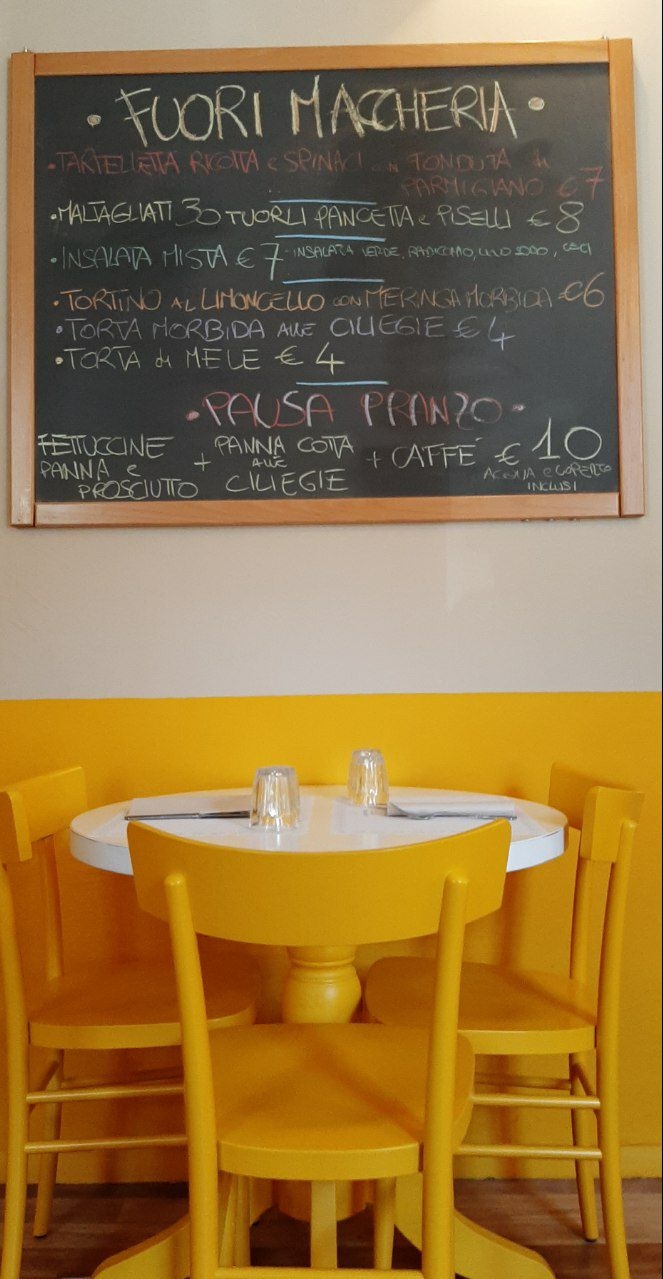 • FUORI MACCHERIA •
• TARTELLETTA RICOTTA e SPINACI con FONDUTA di
PARMIGIANO €7
• MALTAGLIATI 30 TUORLI PANCETTA e PISELLI €8
• INSALATA MISTA €7 - INSALATA VERDE, RADICCHIO, UOVO SODO, CECI
• TORTINO AL LIMONCELLO CON MERINGA MORBIDA €6
• TORTA MORBIDA ALLE CILIEGIE €4
• TORTA di MELE €4
• PAUSA PRANZO •
FETTUCCINE
PANNA e
PROSCIUTTO
+
PANNA COTTA
ALLE
CILIEGIE
+ CAFFE' € 10
ACQUA e COPERTO
INCLUSI